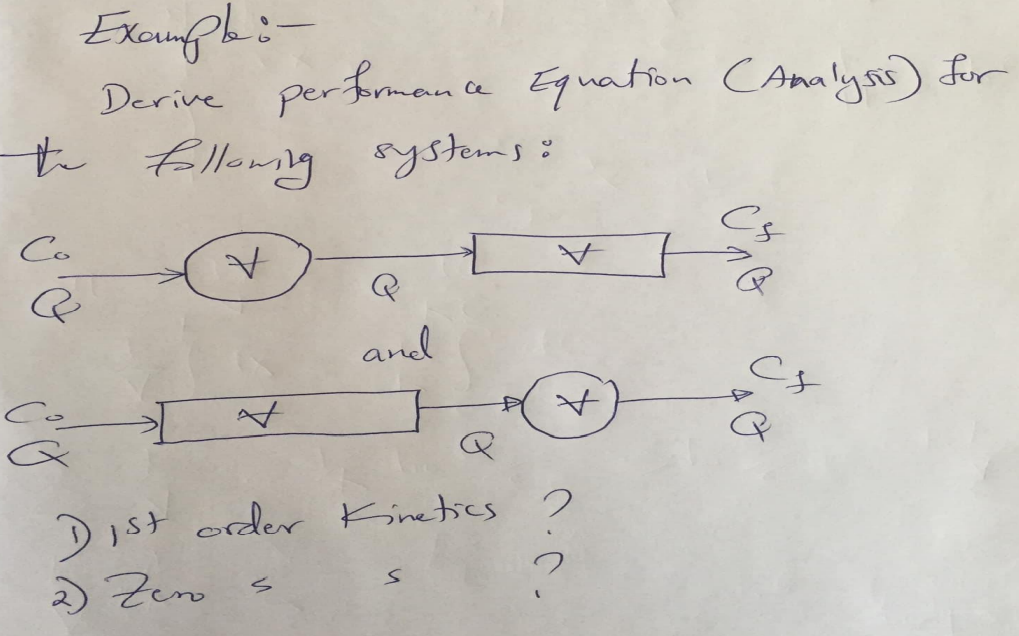 Example:-
Derive performance Equation (Analysis) for
the following systems:
C₀ ∀ ∀ Cf
Q Q Q
and
C₀ ∀ ∀ Cf
Q Q Q
1) 1st order Kinetics ?
2) Zero s s ?